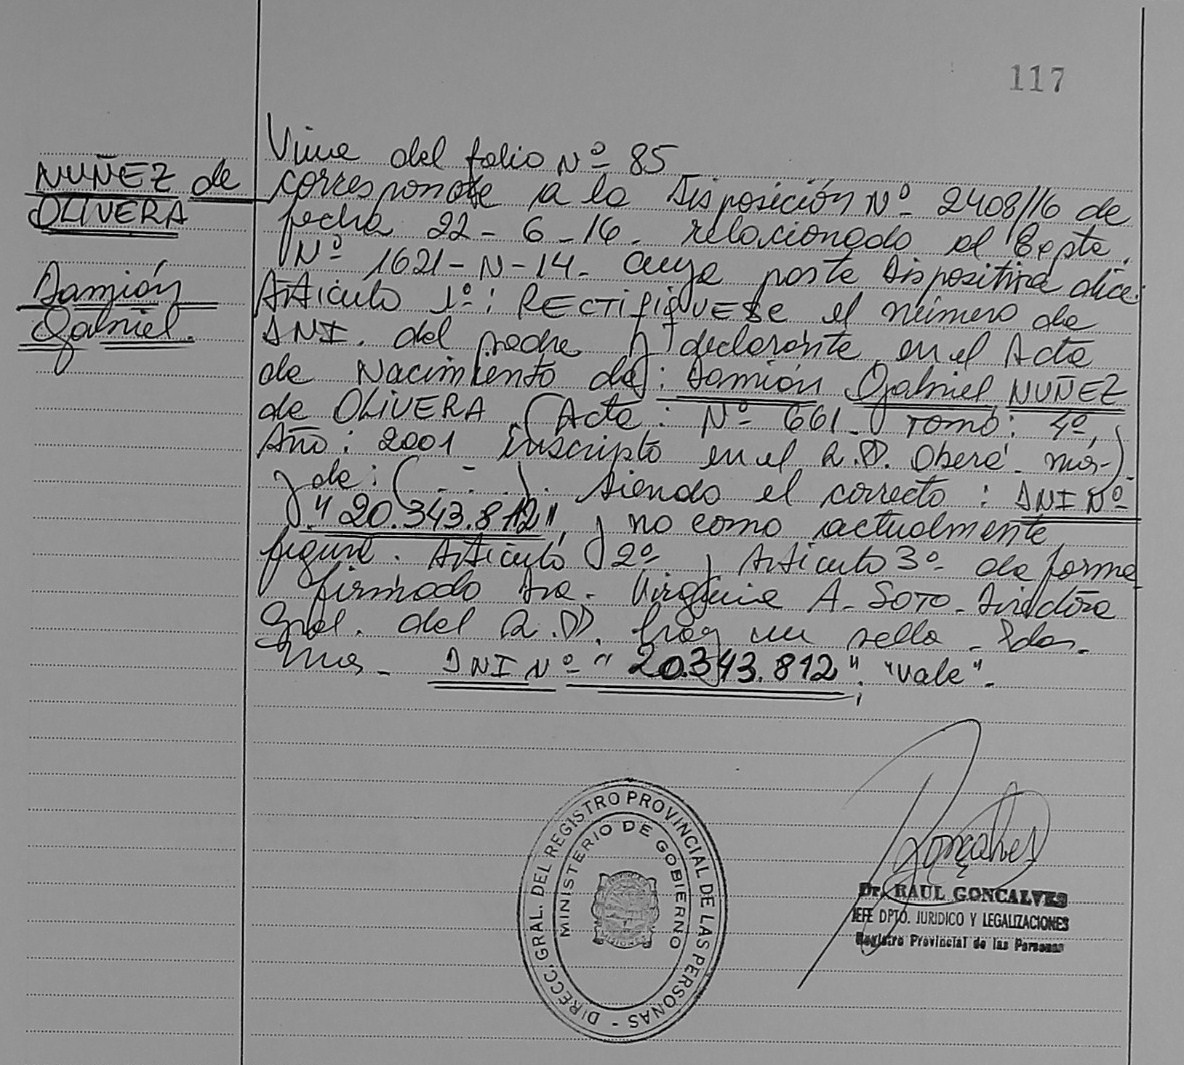 117
NUÑEZ de
OLIVERA
Damián
Gabriel.
Viene del folio Nº 85
corresponde a la Disposición Nº 2408/16 de
fecha 22-6-16. relacionado al Expte.
Nº 1621-N-14. cuya parte Dispositiva dice:
Artículo 1º: RECTIFIQUESE el número de
DNI. del padre y declarante, en el Acta
de Nacimiento de: Damián Gabriel NUÑEZ
de OLIVERA (Acta: Nº 661. Tomo: 4º,
Año: 2001 Inscripto en el R.P. Oberá. Mnes.)
y de: (- - -). Siendo el correcto: DNI Nº
"20.343.812", y no como actualmente
figura. Artículo 2º y Artículo 3º de forma
firmado Dra. Virginia A. SOTO. Directora
Gral. del R.P. hay un sello. Pdas.
Mnes. DNI Nº "20.343.812"; "Vale".
DIRECC. GRAL. DEL REGISTRO PROVINCIAL DE LAS PERSONAS -
MINISTERIO DE GOBIERNO
Gonçalves
Dr. RAUL GONCALVES
JEFE DPTO. JURIDICO Y LEGALIZACIONES
Registro Provincial de las Personas